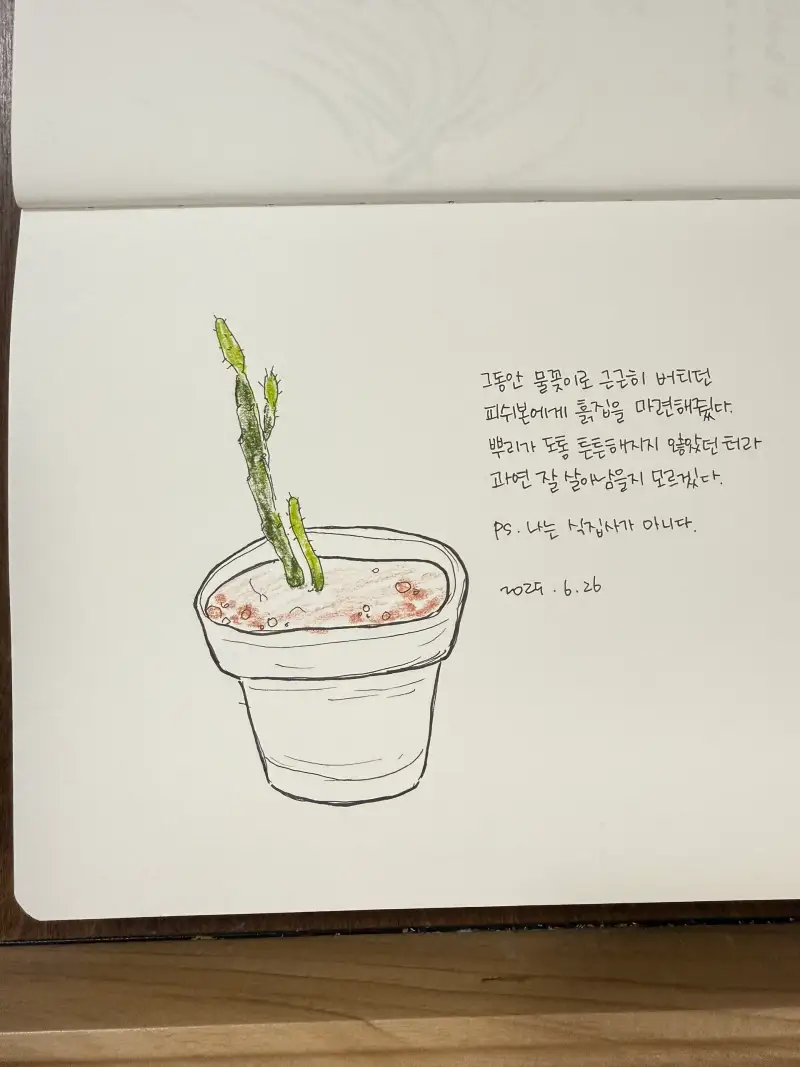 그동안 물꽂이로 근근히 버티던
피쉬본에게 흙집을 마련해줬다.
뿌리가 도통 튼튼해지지 않았던 터라
과연 잘 살아남을지 모르겠다.
PS. 나는 식집사가 아니다.
2025.6.26